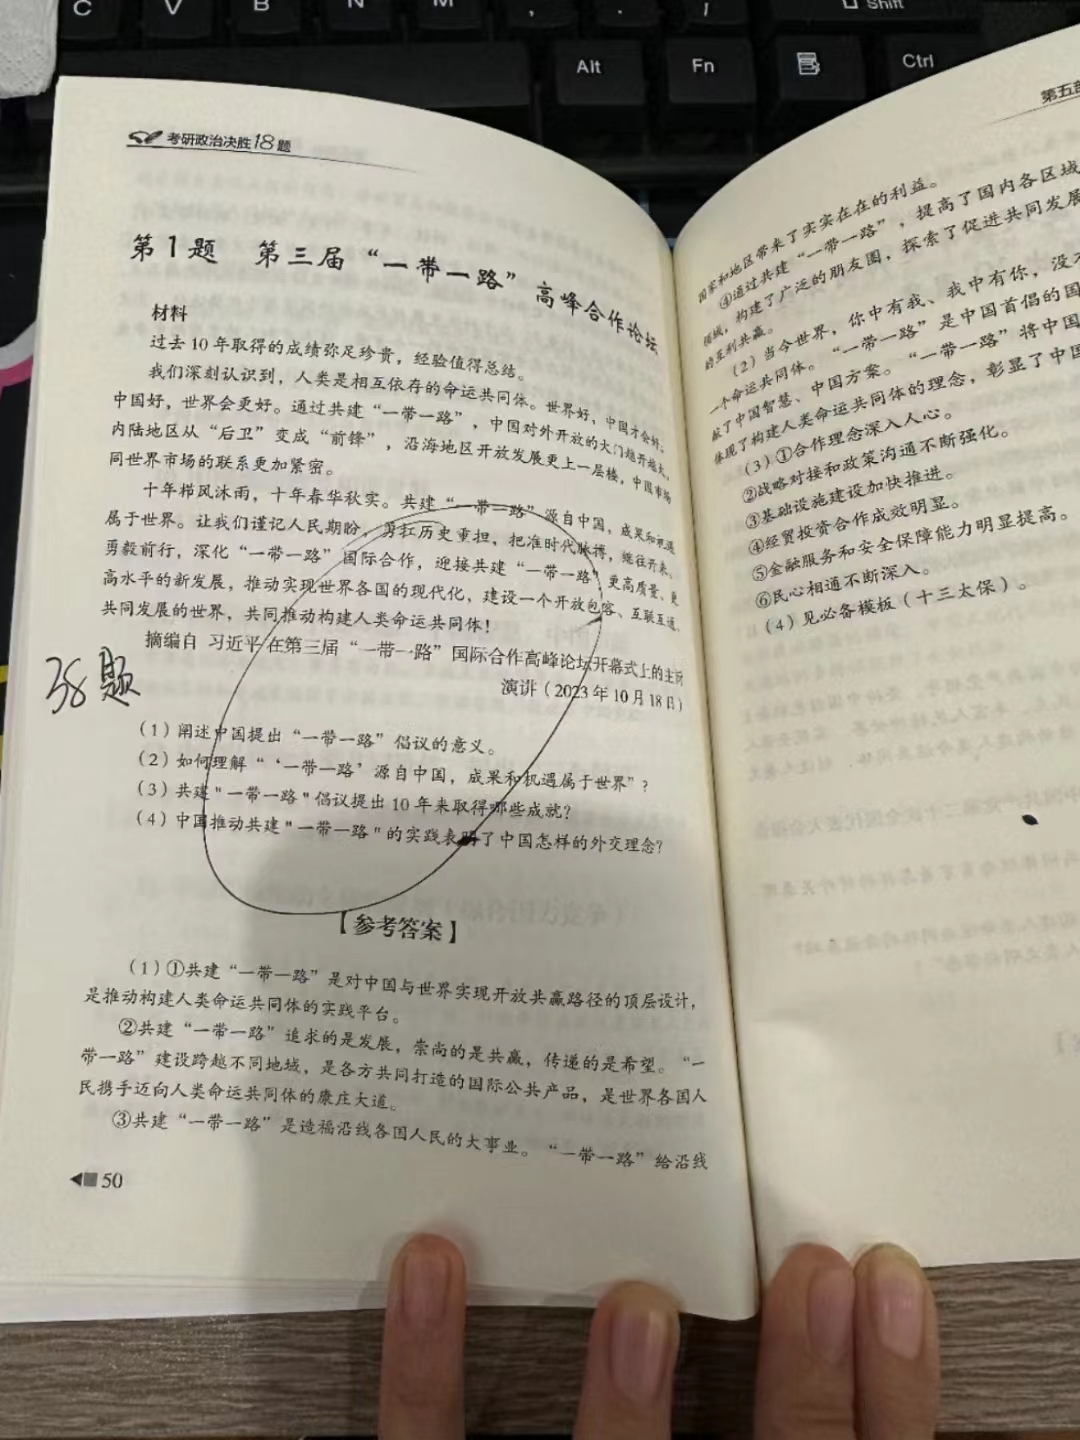 C V B N M , . / Shift
Alt Fn Ctrl
考研政治决胜18题
第1题 第三届“一带一路”高峰合作论坛
材料
过去10年取得的成绩弥足珍贵，经验值得总结。
我们深刻认识到，人类是相互依存的命运共同体。世界好，中国才会好；
中国好，世界会更好。通过共建“一带一路”，中国对外开放的大门越开越大，
内陆地区从“后卫”变成“前锋”，沿海地区开放发展更上一层楼，中国市场
同世界市场的联系更加紧密。
十年栉风沐雨，十年春华秋实。共建“一带一路”源自中国，成果和机遇
属于世界。让我们谨记人民期盼，勇扛历史重担，把准时代脉搏，继往开来、
勇毅前行，深化“一带一路”国际合作，迎接共建“一带一路”更高质量、更
高水平的新发展，推动实现世界各国的现代化，建设一个开放包容、互联互通、
共同发展的世界，共同推动构建人类命运共同体！
摘编自 习近平在第三届“一带一路”国际合作高峰论坛开幕式上的主旨
演讲（2023年10月18日）
38题
（1）阐述中国提出“一带一路”倡议的意义。
（2）如何理解“‘一带一路’源自中国，成果和机遇属于世界”？
（3）共建"一带一路"倡议提出10年来取得哪些成就？
（4）中国推动共建"一带一路"的实践表明了中国怎样的外交理念？
【参考答案】
（1）①共建“一带一路”是对中国与世界实现开放共赢路径的顶层设计，
是推动构建人类命运共同体的实践平台。
②共建“一带一路”追求的是发展，崇尚的是共赢，传递的是希望。“一
带一路”建设跨越不同地域，是各方共同打造的国际公共产品，是世界各国人
民携手迈向人类命运共同体的康庄大道。
③共建“一带一路”是造福沿线各国人民的大事业。“一带一路”给沿线
50
第五部
国家和地区带来了实实在在的利益。
④通过共建“一带一路”，提高了国内各区域
领域，构建了广泛的朋友圈，探索了促进共同发展
的互利共赢。
（2）当今世界，你中有我、我中有你，没
一个命运共同体。“一带一路”是中国首倡的国
献了中国智慧、中国方案。“一带一路”将中国
体现了构建人类命运共同体的理念，彰显了中国
（3）①合作理念深入人心。
②战略对接和政策沟通不断强化。
③基础设施建设加快推进。
④经贸投资合作成效明显。
⑤金融服务和安全保障能力明显提高。
⑥民心相通不断深入。
（4）见必备模板（十三太保）。